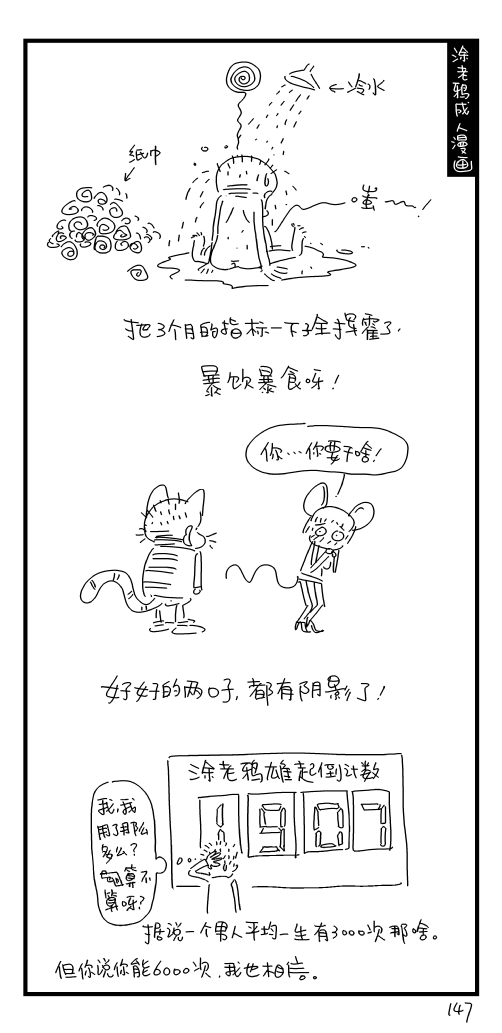 涂老鸦成人漫画
←冷水
纸巾
嗤~~!
把3个月的指标一下子全挥霍了.
暴饮暴食呀!
你…你要干啥!
好好的两口子,都有阴影了!
涂老鸦雄起倒计数
1907
我,我
用了那么
多么?
算不
算呀?
据说一个男人平均一生有3000次那啥。
但你说你能6000次,我也相信。
147